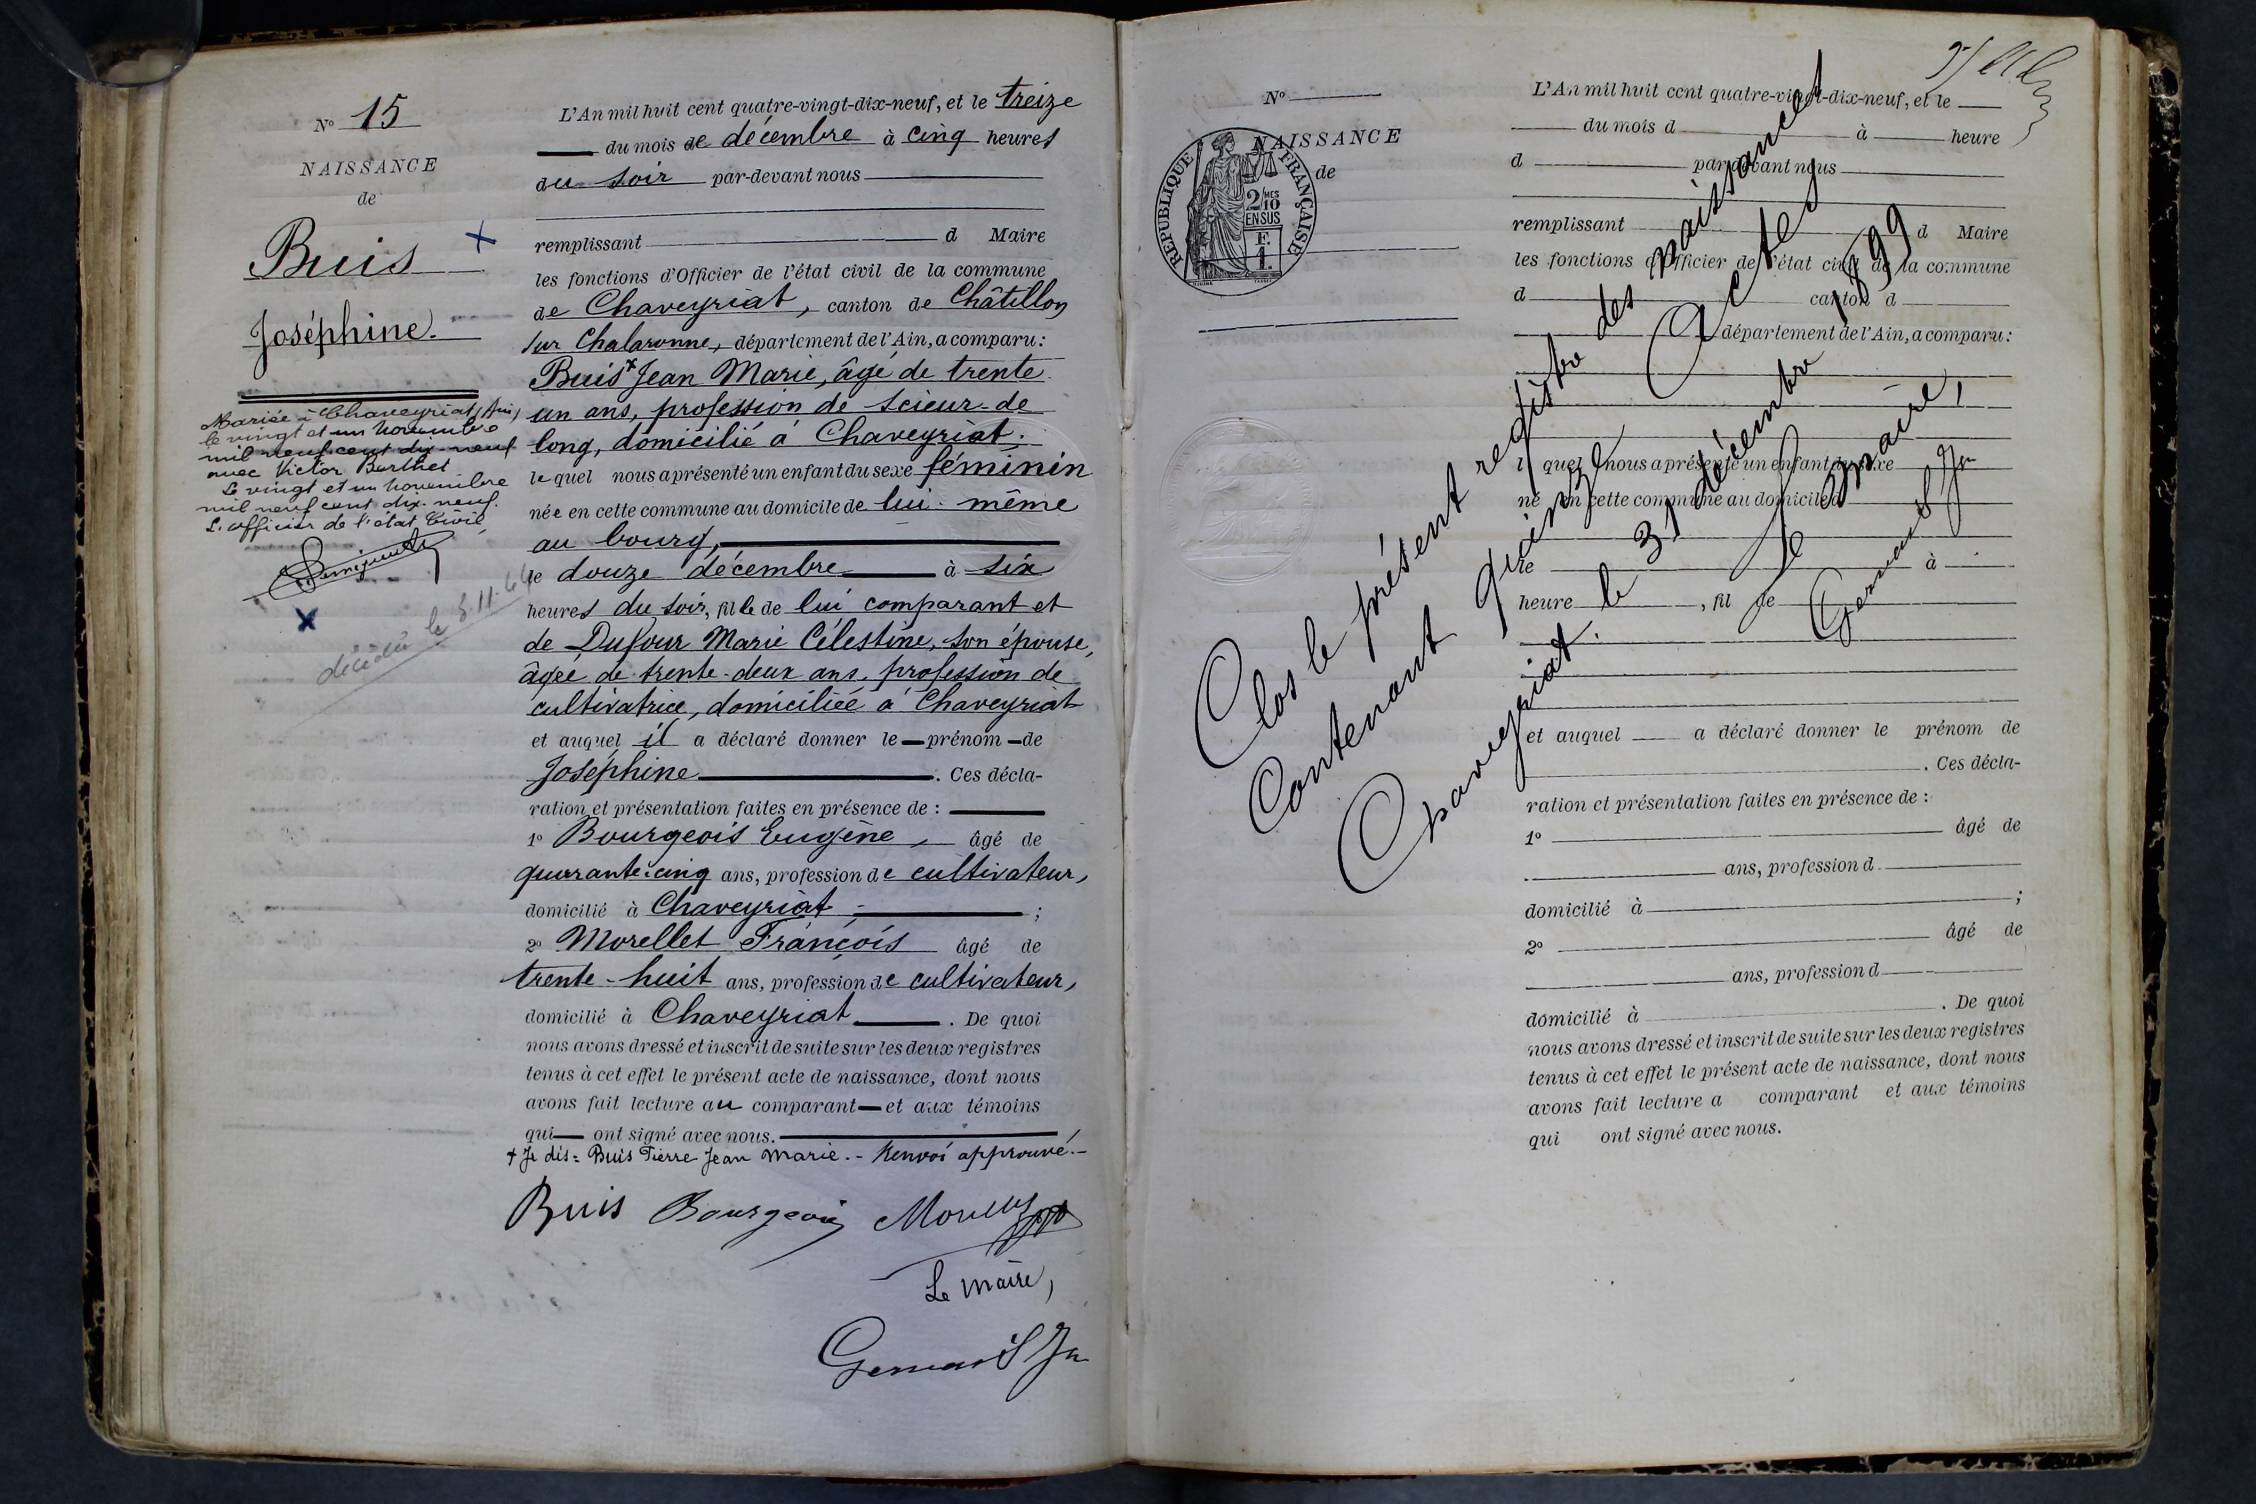 N° 15
NAISSANCE
de
Buis
Joséphine.
Mariée à Chaveyriat, Ain,
le vingt et un novembre
mil neuf cent dix-neuf
avec Victor Berthet
Le vingt et un novembre
mil neuf cent dix-neuf.
L'officier de l'état Civil,
décédée le 5.11.64
L'An mil huit cent quatre-vingt-dix-neuf, et le treize
du mois de décembre à cinq heures
du soir par-devant nous
remplissant d Maire
les fonctions d'Officier de l'état civil de la commune
de Chaveyriat, canton de Châtillon
sur Chalaronne, département de l'Ain, a comparu :
Buis + Jean Marie, âgé de trente
un ans, profession de scieur-de
long, domicilié à Chaveyriat.
lequel nous a présenté un enfant du sexe féminin
née en cette commune au domicile de lui-même
au bourg,
le douze décembre à six
heures du soir, fille de lui comparant et
de Dufour Marie Célestine, son épouse,
âgée de trente-deux ans, profession de
cultivatrice, domiciliée à Chaveyriat
et auquel il a déclaré donner le prénom de
Joséphine . Ces décla-
ration et présentation faites en présence de :
1° Bourgeois Eugène, âgé de
quarante-cinq ans, profession de cultivateur,
domicilié à Chaveyriat ;
2° Morellet François âgé de
trente-huit ans, profession de cultivateur,
domicilié à Chaveyriat . De quoi
nous avons dressé et inscrit de suite sur les deux registres
tenus à cet effet le présent acte de naissance, dont nous
avons fait lecture au comparant et aux témoins
qui ont signé avec nous.
+ Je dis = Buis Pierre Jean Marie. - Renvoi approuvé. -
Buis Bourgeois Morellet
Le Maire,
Gervais Jn
N°
NAISSANCE
de
RÉPUBLIQUE FRANÇAISE
2/10 MES
EN SUS
F.
1.
L'An mil huit cent quatre-vingt-dix-neuf, et le
du mois d à heure
d par-devant nous
remplissant d Maire
les fonctions d'Officier de l'état civil de la commune
d canton d
département de l'Ain, a comparu :
l quel nous a présenté un enfant du sexe
né en cette commune au domicile d
le à
heure , fil de
et auquel a déclaré donner le prénom de
. Ces décla-
ration et présentation faites en présence de :
1° âgé de
ans, profession d
domicilié à ;
2° âgé de
ans, profession d
domicilié à . De quoi
nous avons dressé et inscrit de suite sur les deux registres
tenus à cet effet le présent acte de naissance, dont nous
avons fait lecture a comparant et aux témoins
qui ont signé avec nous.
Clos le présent registre des naissances
Contenant quinze Actes
Chaveyriat. le 31 décembre 1899
Le Maire,
Gervais Jn